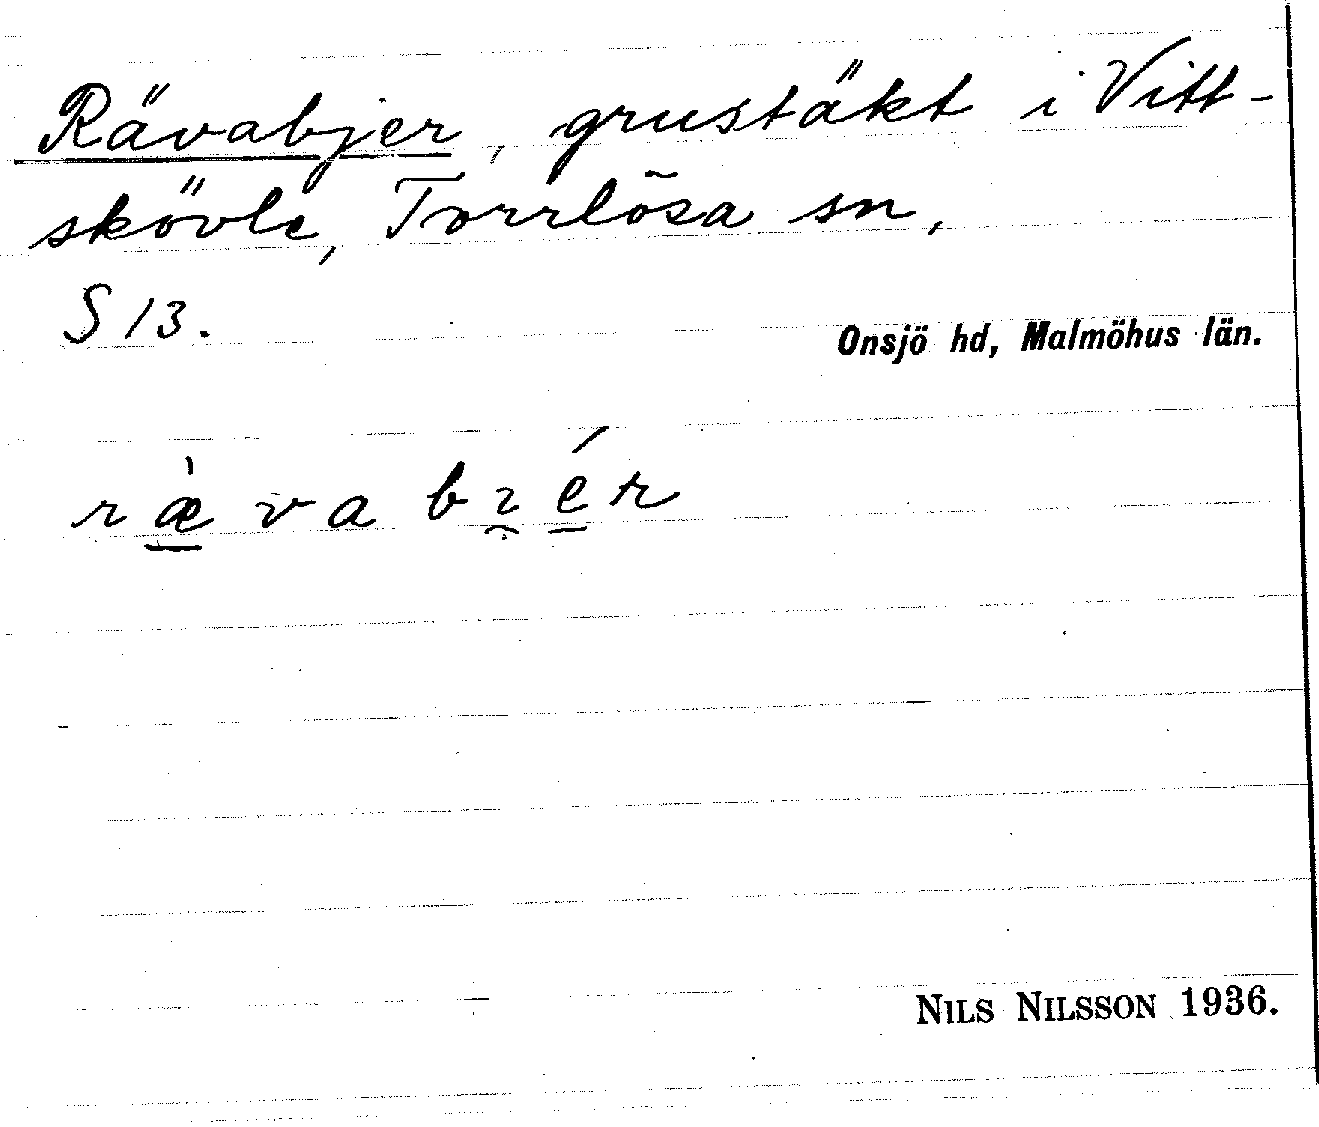 Rävabjer, grustäkt i Vitt-
skövle, Torrlösa sn,
S 13.
Onsjö hd, Malmöhus län.
rǽ̱vabɪ̯é̱r
NILS NILSSON 1936.